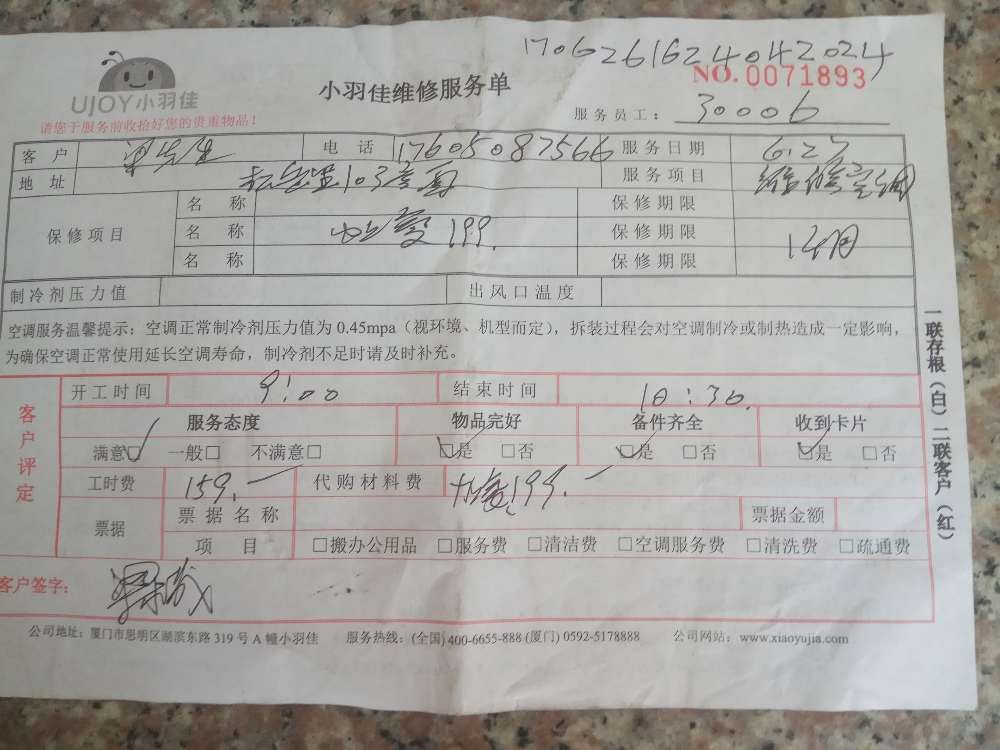 170626162404 2024
UJOY小羽佳
小羽佳维修服务单
NO.0071893
请您于服务前收拾好您的贵重物品！
服务员工： 30006
客户 梁先生 电话 17605087566 服务日期 6.27
地址 103 服务项目 维修空调
保修项目 名称 保修期限
名称 199. 保修期限 1个月
名称 保修期限
制冷剂压力值 出风口温度
空调服务温馨提示：空调正常制冷剂压力值为 0.45mpa（视环境、机型而定），拆装过程会对空调制冷或制热造成一定影响，
为确保空调正常使用延长空调寿命，制冷剂不足时请及时补充。
一联存根（白）二联客户（红）
客户评定
开工时间 9:00 结束时间 10:30.
服务态度 物品完好 备件齐全 收到卡片
满意□ 一般□ 不满意□ □是 □否 □是 □否 □是 □否
工时费 159.— 代购材料费 199.—
票据 票据名称 票据金额
项目 □搬办公用品 □服务费 □清洁费 □空调服务费 □清洗费 □疏通费
客户签字：
公司地址：厦门市思明区湖滨东路 319 号 A 幢小羽佳 服务热线：(全国) 400-6655-888 (厦门) 0592-5178888 公司网站：www.xiaoyujia.com